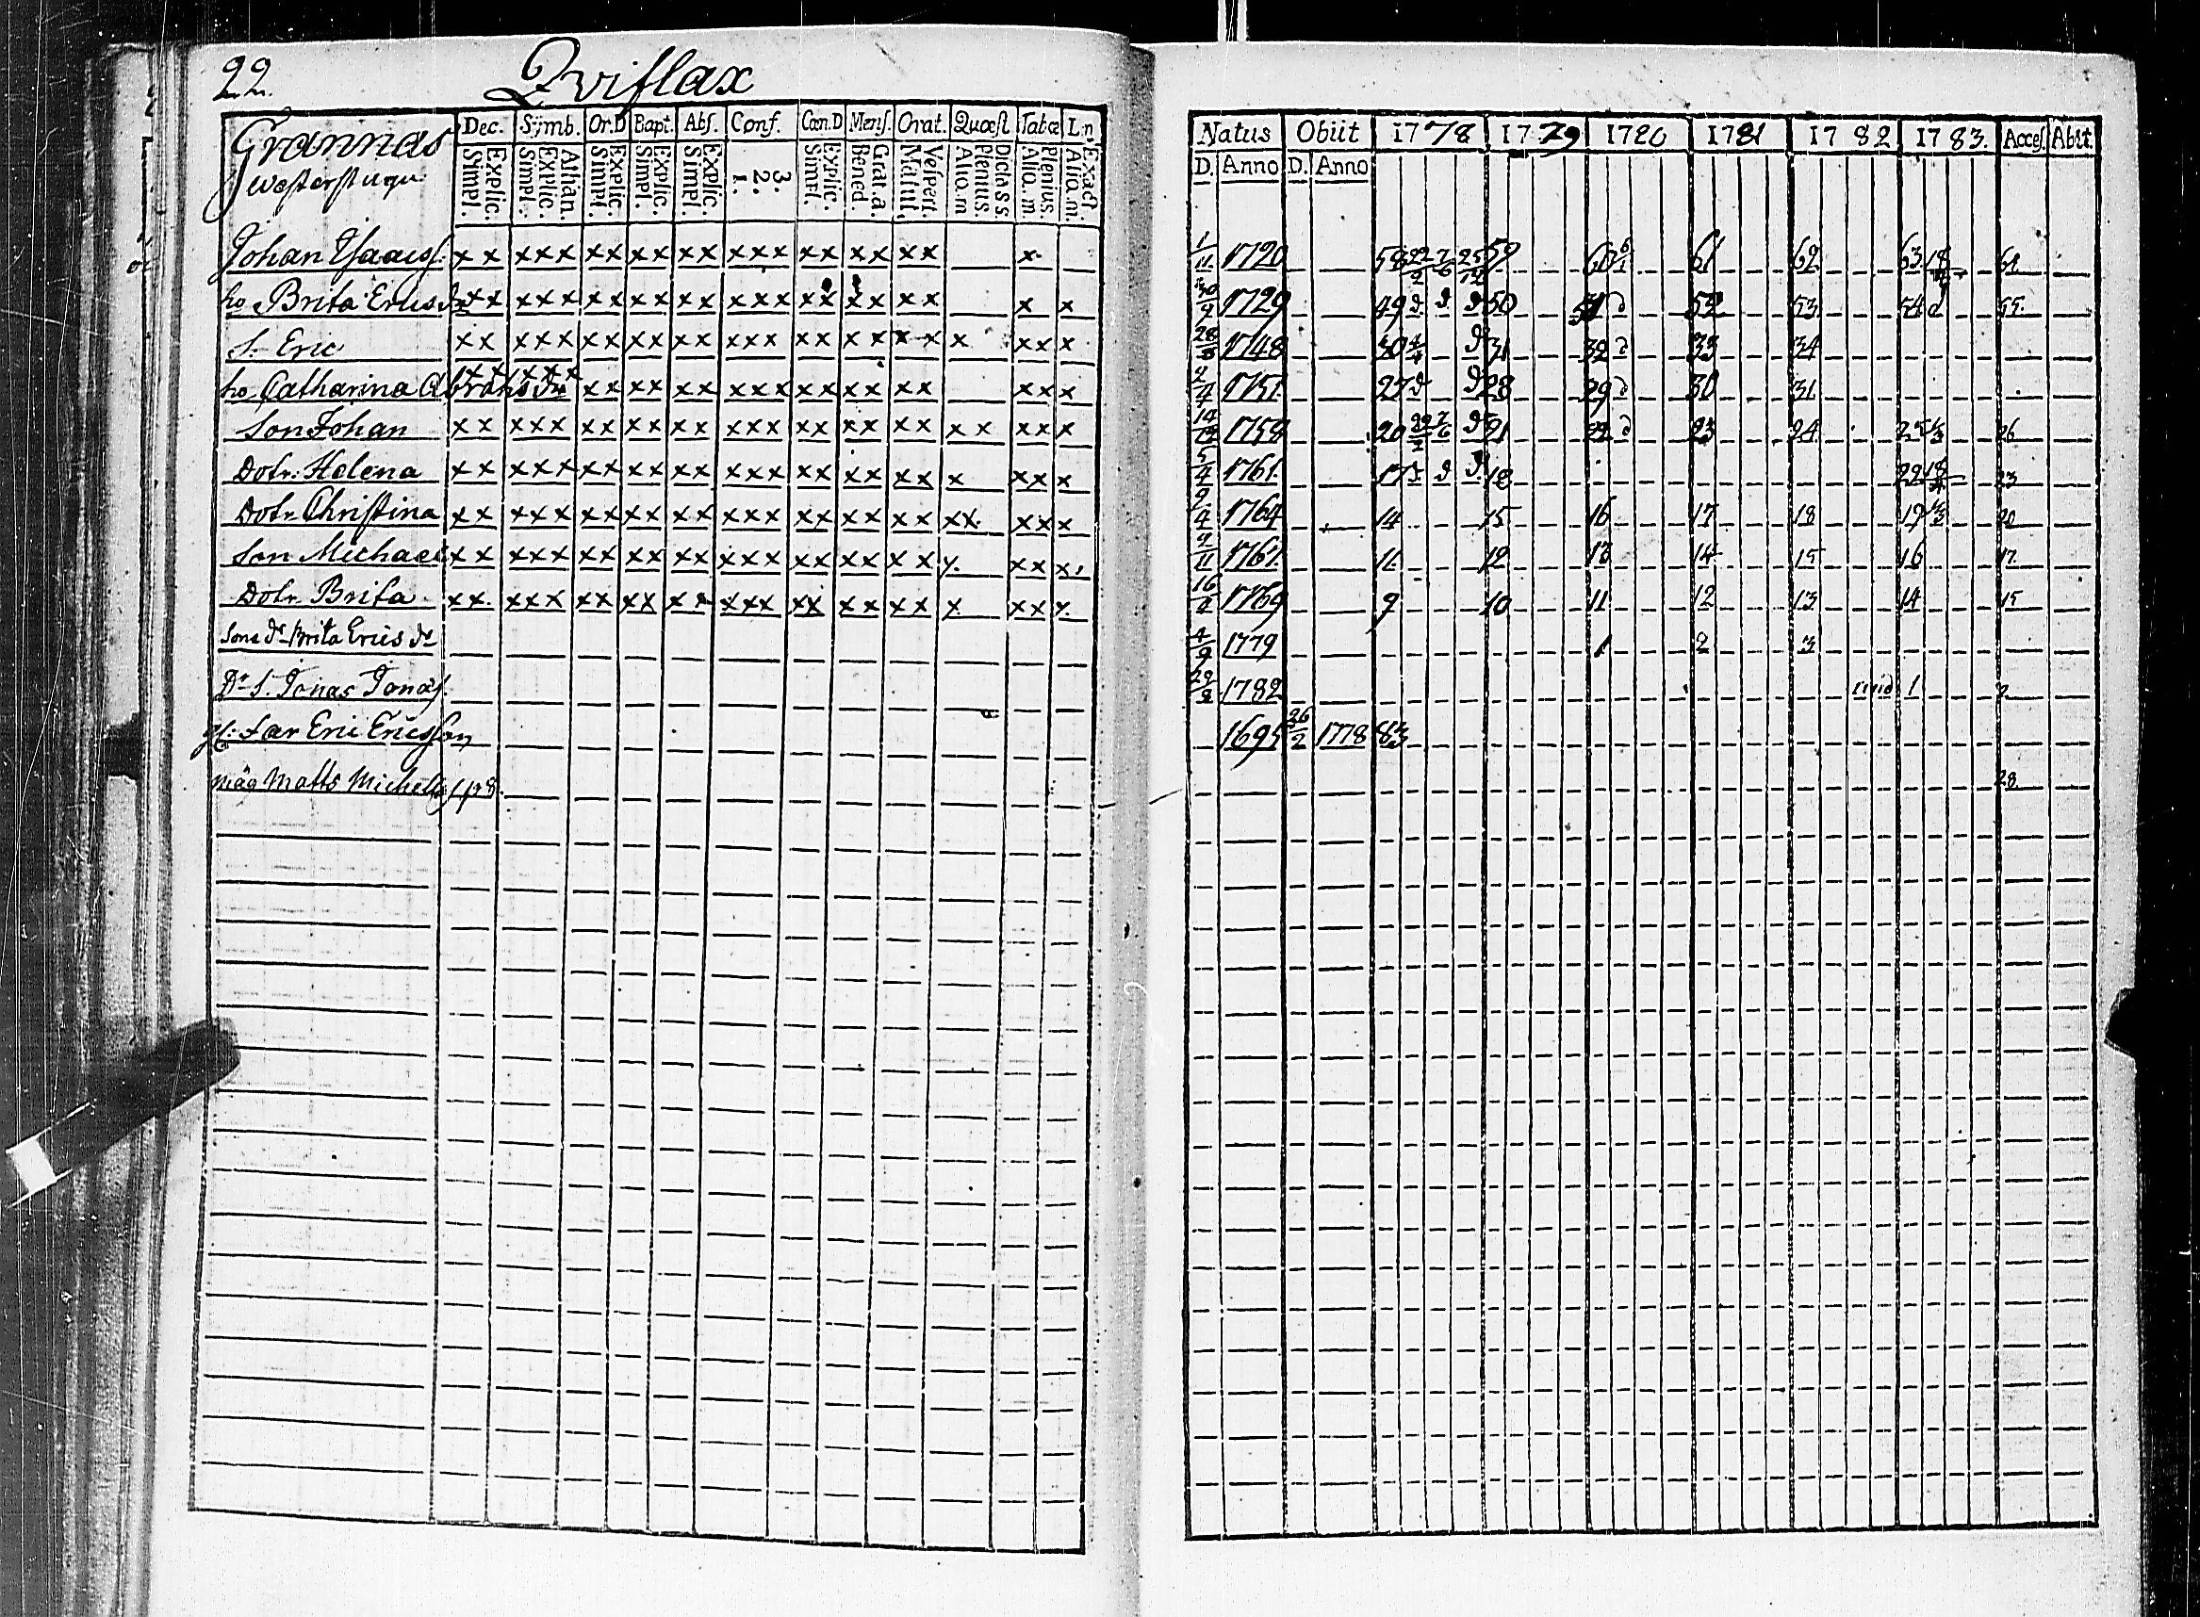 22. Qviflax
Grannas
westerstugu
Dec. Sijmb. Or.D Bapt. Abs. Conf. Cœn.D Mens. Orat. Quæst Tabæ L:n
Simpl. Explic. Simpl. Explic. Athan. Simpl. Explic. Simpl. Explic. Simpl. Explic. 1. 2. 3. Simpl. Explic. Bened. Grat.a. Matut. Vespert. Alio.m Plenius. Dicta s s. Alio.m. Plenius. Alia.m. Exact
Johan Isaacss. x x x x x x x x x x x x x x x x x x x x x
ho Brita Ericsdr x x x x x x x x x x x x x x x x x x x x x x
S. Eric x x x x x x x x x x x x x x x x x x x x x x x x
ho Catharina Abrahsdr x x x x x x x x x x x x x x x x x x x x x x x
Son Johan x x x x x x x x x x x x x x x x x x x x x x x x x
Dotr. Helena x x x x x x x x x x x x x x x x x x x x x x x x
Dotr Christina x x x x x x x x x x x x x x x x x x x x x x x x x
Son Michael x x x x x x x x x x x x x x x x x x x x x x x x
Dotr Brita x x x x x x x x x x x x x x x x x x x x x x x x
Sons dr Brita Erics dr
Dr S. Jonas Jonass.
gl: Far Eric Ericsson
måg Matts Michelss
Natus Obiit 1778 1779 1780 1781 1782 1783. Acces. Abit
D. Anno D. Anno
1/11 1720 58 22/2 7/6 25/12 59 60 61 62 63 18/4 64
30/9 1729 49 d d d 50 51 d 52 53 54 d 55.
28/8 1748 30 d 31 32 d 33 34
1751. 27 d d 28 29 d 30 31
1758 20 22/2 7/6 d 21 22 d 23 24 25 26
5/4 1761. 17 d d d 18 22 18/4 23
1764 14 15 16 17 18 19 20
1767. 11. 12 13 14 15 16 17.
1769 9 10 11 12 13 14 15
4/9 1779 1 2 3
1782 1 2
1695 26/2 1778 83
28.